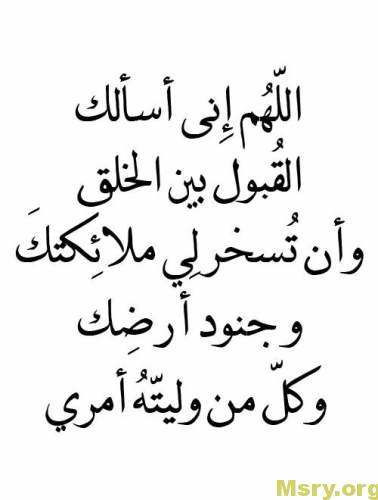 اللّهُم إِنى أسألك
القُبول بين الخلق
وأن تُسخر لِي ملائِكتكَ
و جنود أرضِك
وكلّ من وليتّهُ أمري
Msry.org